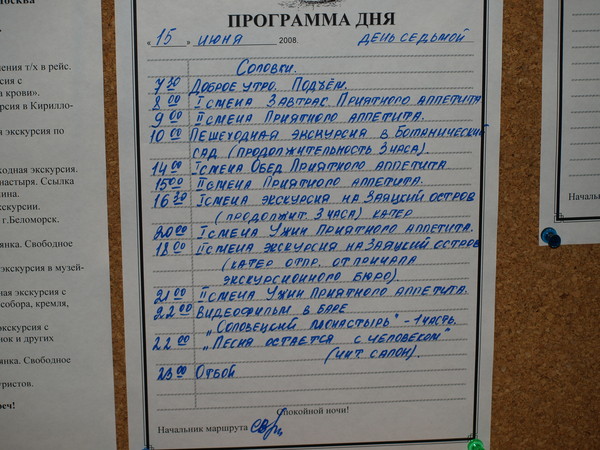 ПРОГРАММА ДНЯ
« 15 » ИЮНЯ 2008 ДЕНЬ СЕДЬМОЙ
Соловки.
7 30 Доброе утро. Подъём.
8 00 I смена Завтрак Приятного аппетита
9 00 II смена Приятного аппетита.
10 00 Пешеходная экскурсия в Ботанический
сад (продолжительность 3 часа).
14 00 I смена Обед Приятного аппетита
15 00 II смена Приятного аппетита.
16 30 I смена экскурсия на Заяцкий остров
(продолжит. 3 часа) катер
20 00 I смена Ужин Приятного аппетита.
18 00 II смена экскурсия на Заяцкий остров
(катер отпр. от причала
экскурсионного бюро).
21 00 II смена Ужин Приятного аппетита.
22 00 Видеофильм в баре
„Соловецкий монастырь" - 1 часть.
22 00 „Песня остается с человеком"
(чит. салон).
23 00 Отбой
Спокойной ночи!
Начальник маршрута
ения т/х в рейс.
сия с
а крови».
рсия в Кирилло-
я экскурсия по
ходная экскурсия.
настыря. Ссылка
нина.
скурсии.
г.Беломорск.
янка. Свободное
экскурсия в музей-
ная экскурсия с
собора, кремля,
экскурсия с
нок и других
янка. Свободное
уристов.
реч!
Начальн